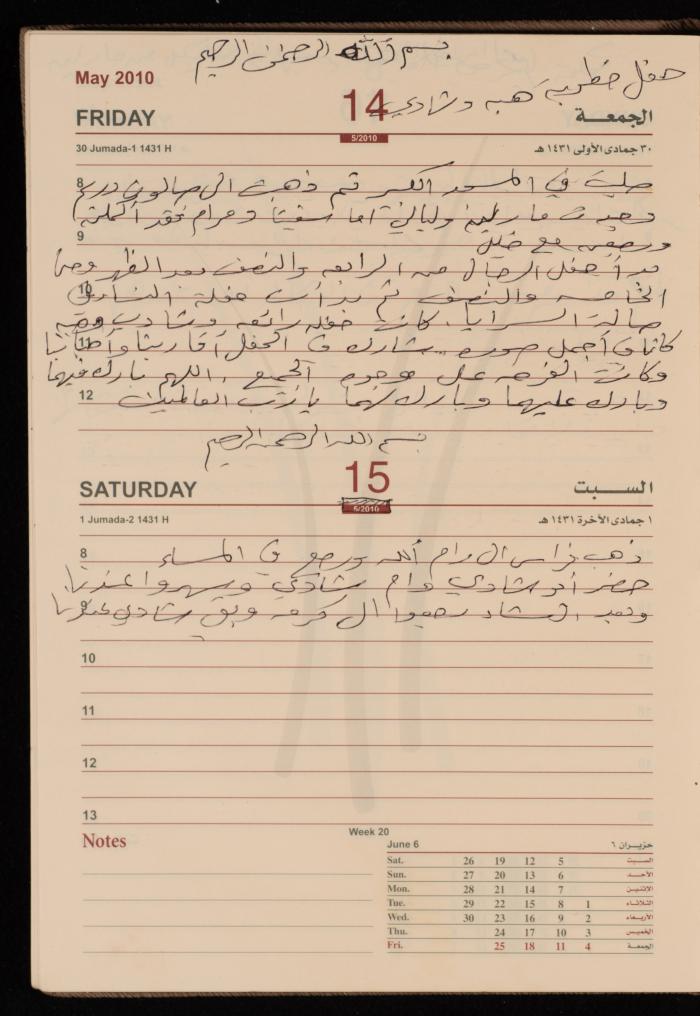 بسم الله الرحمن الرحيم
حفل خطوبة هبه وشادي
May 2010
FRIDAY 14 الجمعـــة
5/2010
30 Jumada-1 1431 H ٣٠ جمادى الأولى ١٤٣١ هـ
8 صليت في المسجد الكبير ثم ذهبت الى صالون
وليالي أما ومرام فقد أكملت
9
ورجعت مع خليل
بدأ حفل الرجال من الرابعه والنصف بعد الظهر وحتى
10 الخامسه والنصف ثم بدأت حفلة النساء في
صالة السرايا. كانت حفله رائعه وشادي وهبه
11 كانا في أجمل صوره.. شارك في الحفل أقاربنا
وكانت الفرحه على وجوه الجميع. اللهم بارك فيهما
12 وبارك عليهما وبارك لهما يا رب العالمين
بسم الله الرحمن الرحيم
SATURDAY 15 الســـبت
5/2010
1 Jumada-2 1431 H ١ جمادى الأخرة ١٤٣١ هـ
8 ذهب فراس الى رام الله ورجع في المساء
حضر أبو شادي وام شادي وسهروا عندنا.
9 وبعد العشاء رجعوا الى وبقي شادي عندنا
10
11
12
13
Notes
Week 20
June 6 حزيــران ٦
Sat. 26 19 12 5 السـبت
Sun. 27 20 13 6 الأحـد
Mon. 28 21 14 7 الإثنـين
Tue. 29 22 15 8 1 الثلاثـاء
Wed. 30 23 16 9 2 الأربعـاء
Thu. 24 17 10 3 الخميس
Fri. 25 18 11 4 الجمعة